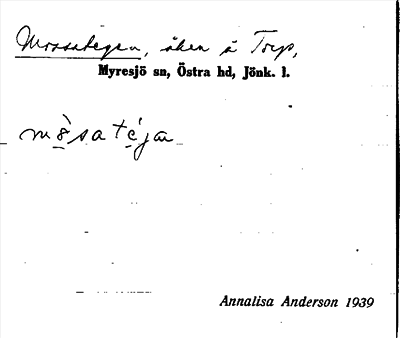 Mossategen, åker å Torp,
Myresjö sn, Östra hd, Jönk. l.
mo̱̊̀satéja
Annalisa Anderson 1939